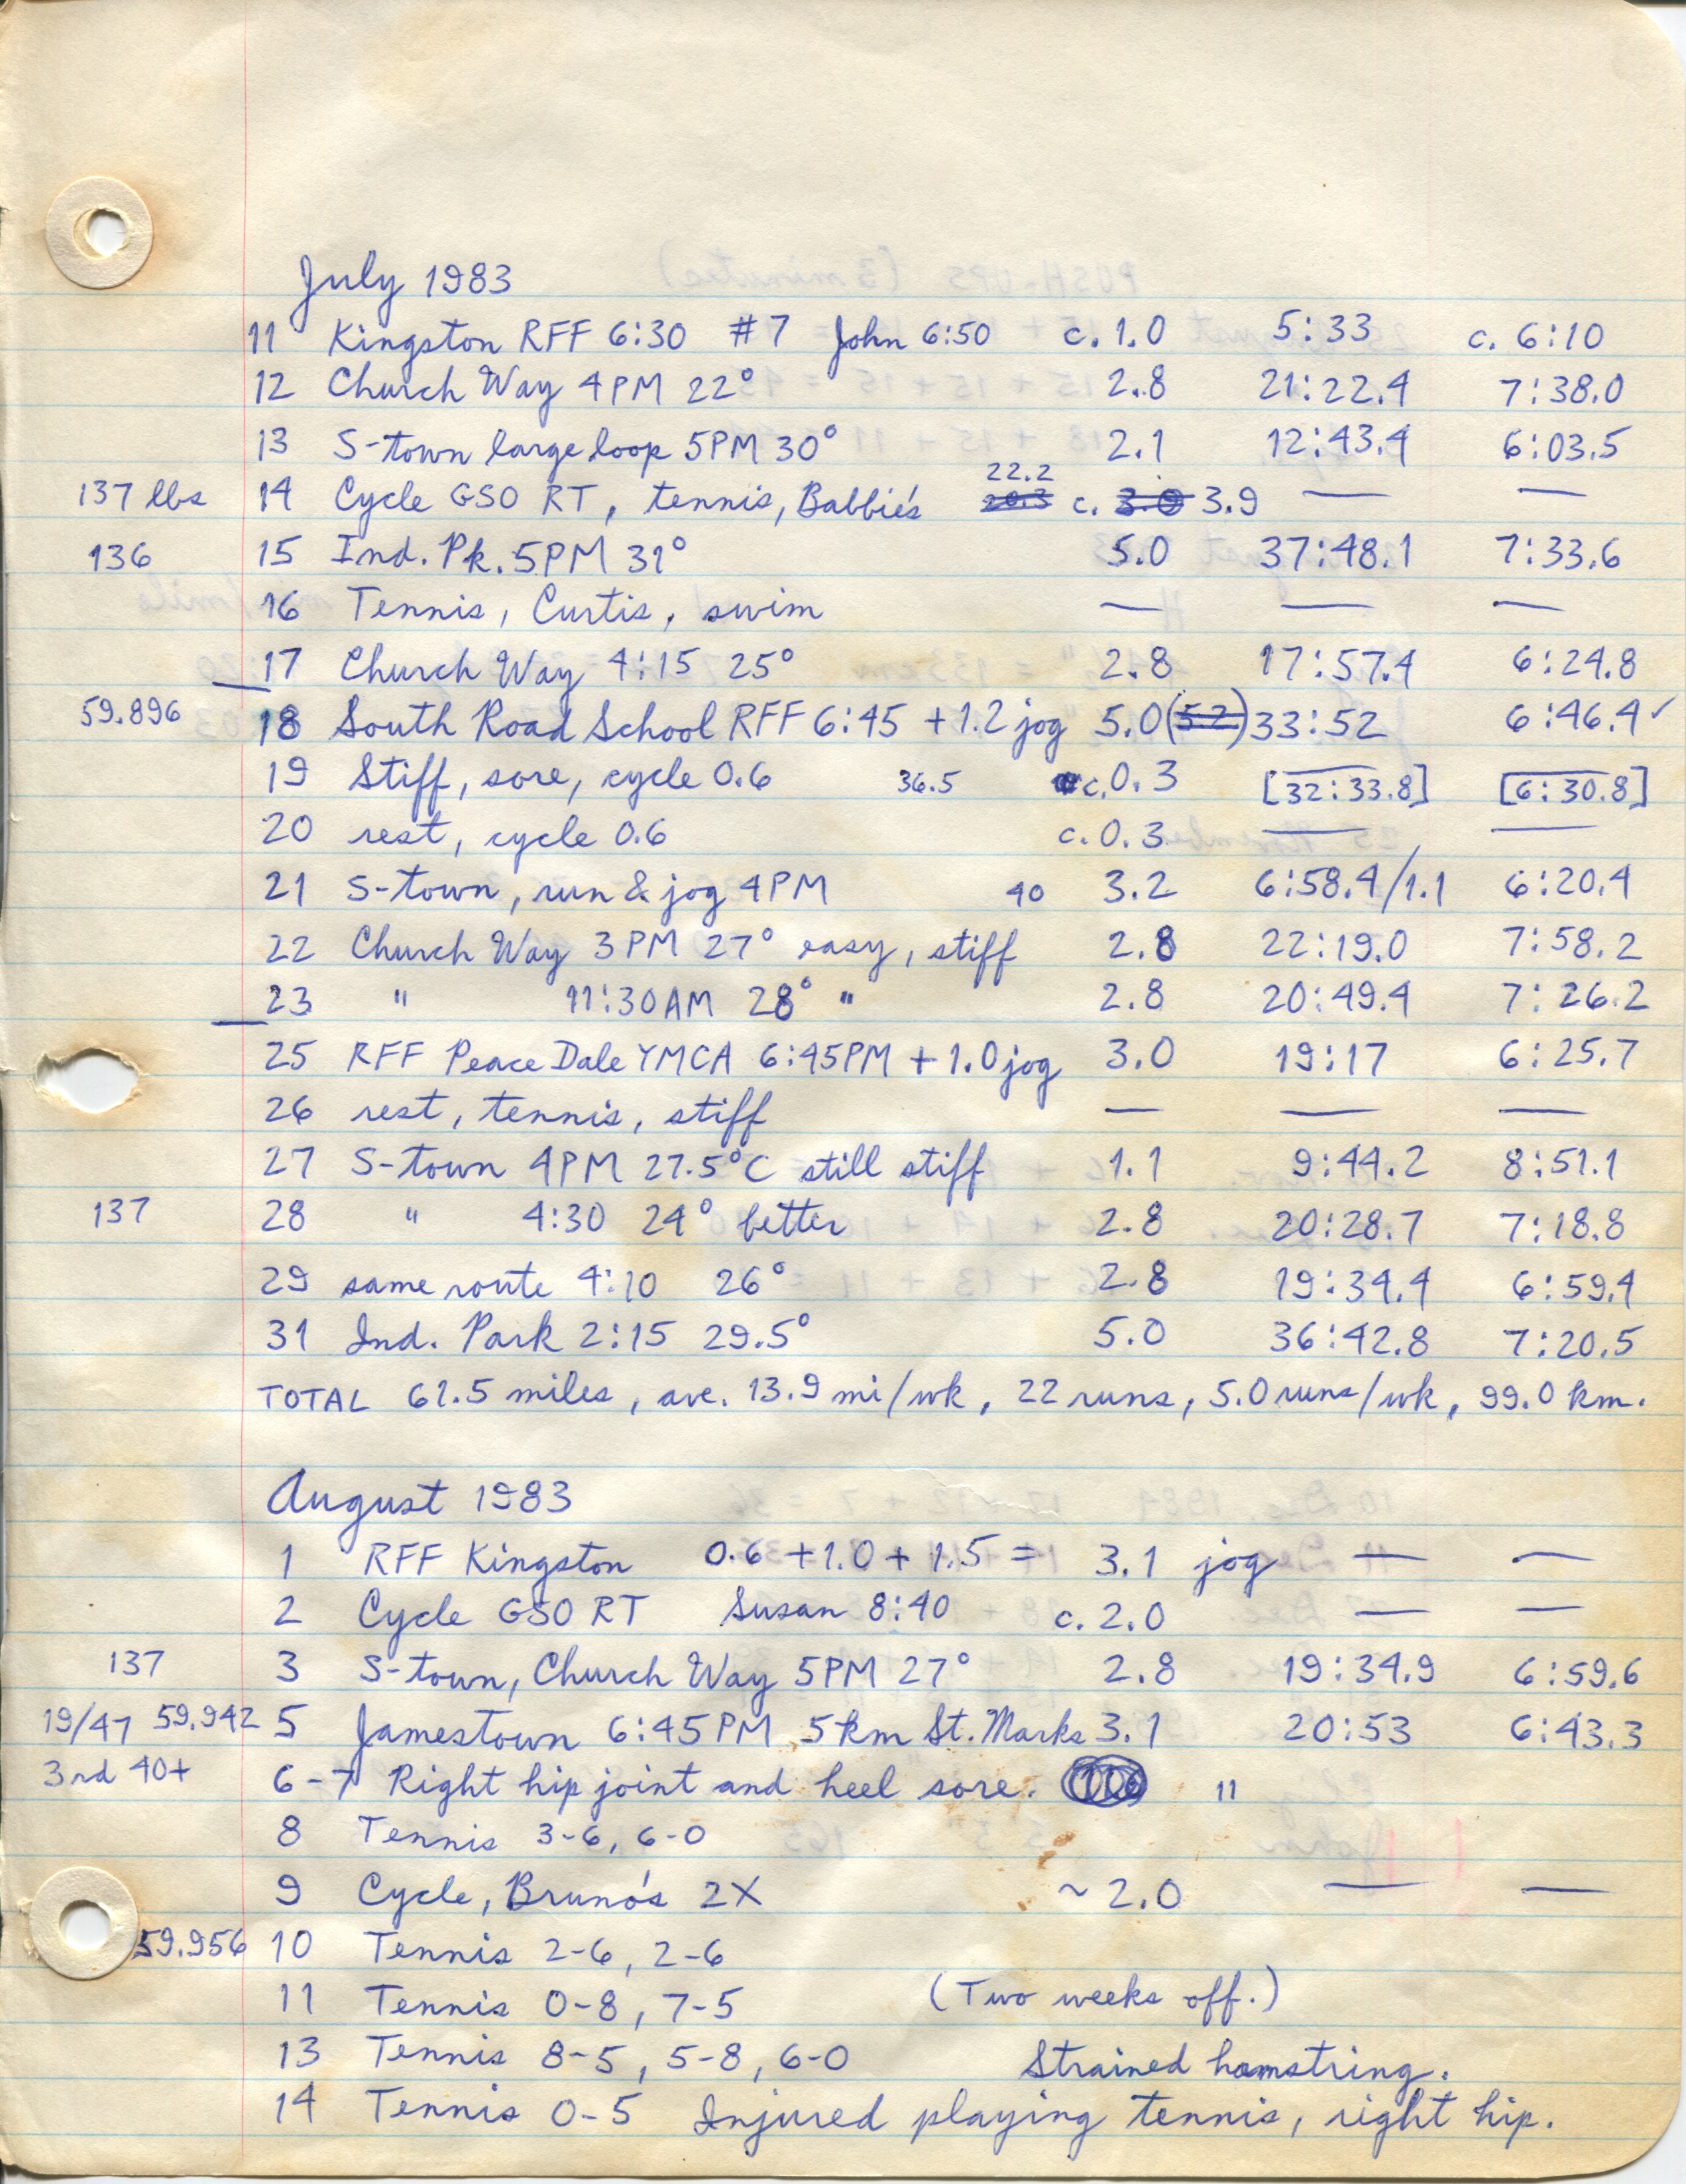 July 1983
11 Kingston RFF 6:30 #7 John 6:50 c. 1.0 5:33 c. 6:10
12 Church Way 4PM 22° 2.8 21:22.4 7:38.0
13 S-town large loop 5PM 30° 2.1 12:43.4 6:03.5
22.2
137 lbs 14 Cycle GSO RT, tennis, Babbie's 20.3 c. 3.0 3.9 — —
136 15 Ind. Pk. 5PM 31° 5.0 37:48.1 7:33.6
16 Tennis, Curtis, swim — — —
17 Church Way 4:15 25° 2.8 17:57.4 6:24.8
59.896 18 South Road School RFF 6:45 + 1.2 jog 5.0 (5.2) 33:52 6:46.4 ✓
19 Stiff, sore, cycle 0.6 36.5 c. 0.3 [32:33.8] [6:30.8]
20 rest, cycle 0.6 c. 0.3 — —
21 S-town, run & jog 4PM 40 3.2 6:58.4/1.1 6:20.4
22 Church Way 3PM 27° easy, stiff 2.8 22:19.0 7:58.2
23 " 11:30AM 28° " 2.8 20:49.4 7:26.2
25 RFF Peace Dale YMCA 6:45PM + 1.0 jog 3.0 19:17 6:25.7
26 rest, tennis, stiff — — —
27 S-town 4PM 27.5°C still stiff 1.1 9:44.2 8:51.1
137 28 " 4:30 24° better 2.8 20:28.7 7:18.8
29 same route 4:10 26° 2.8 19:34.4 6:59.4
31 Ind. Park 2:15 29.5° 5.0 36:42.8 7:20.5
TOTAL 61.5 miles, ave. 13.9 mi/wk, 22 runs, 5.0 runs/wk, 99.0 km.
August 1983
1 RFF Kingston 0.6 + 1.0 + 1.5 = 3.1 jog — —
2 Cycle GSO RT Susan 8:40 c. 2.0 — —
137 3 S-town, Church Way 5PM 27° 2.8 19:34.9 6:59.6
19/47 59.942 5 Jamestown 6:45PM 5km St. Marks 3.1 20:53 6:43.3
3rd 40+ 6-7 Right hip joint and heel sore. 11
8 Tennis 3-6, 6-0
9 Cycle, Bruno's 2X ~2.0 — —
59.956 10 Tennis 2-6, 2-6
11 Tennis 0-8, 7-5 (Two weeks off.)
13 Tennis 8-5, 5-8, 6-0 Strained hamstring.
14 Tennis 0-5 Injured playing tennis, right hip.